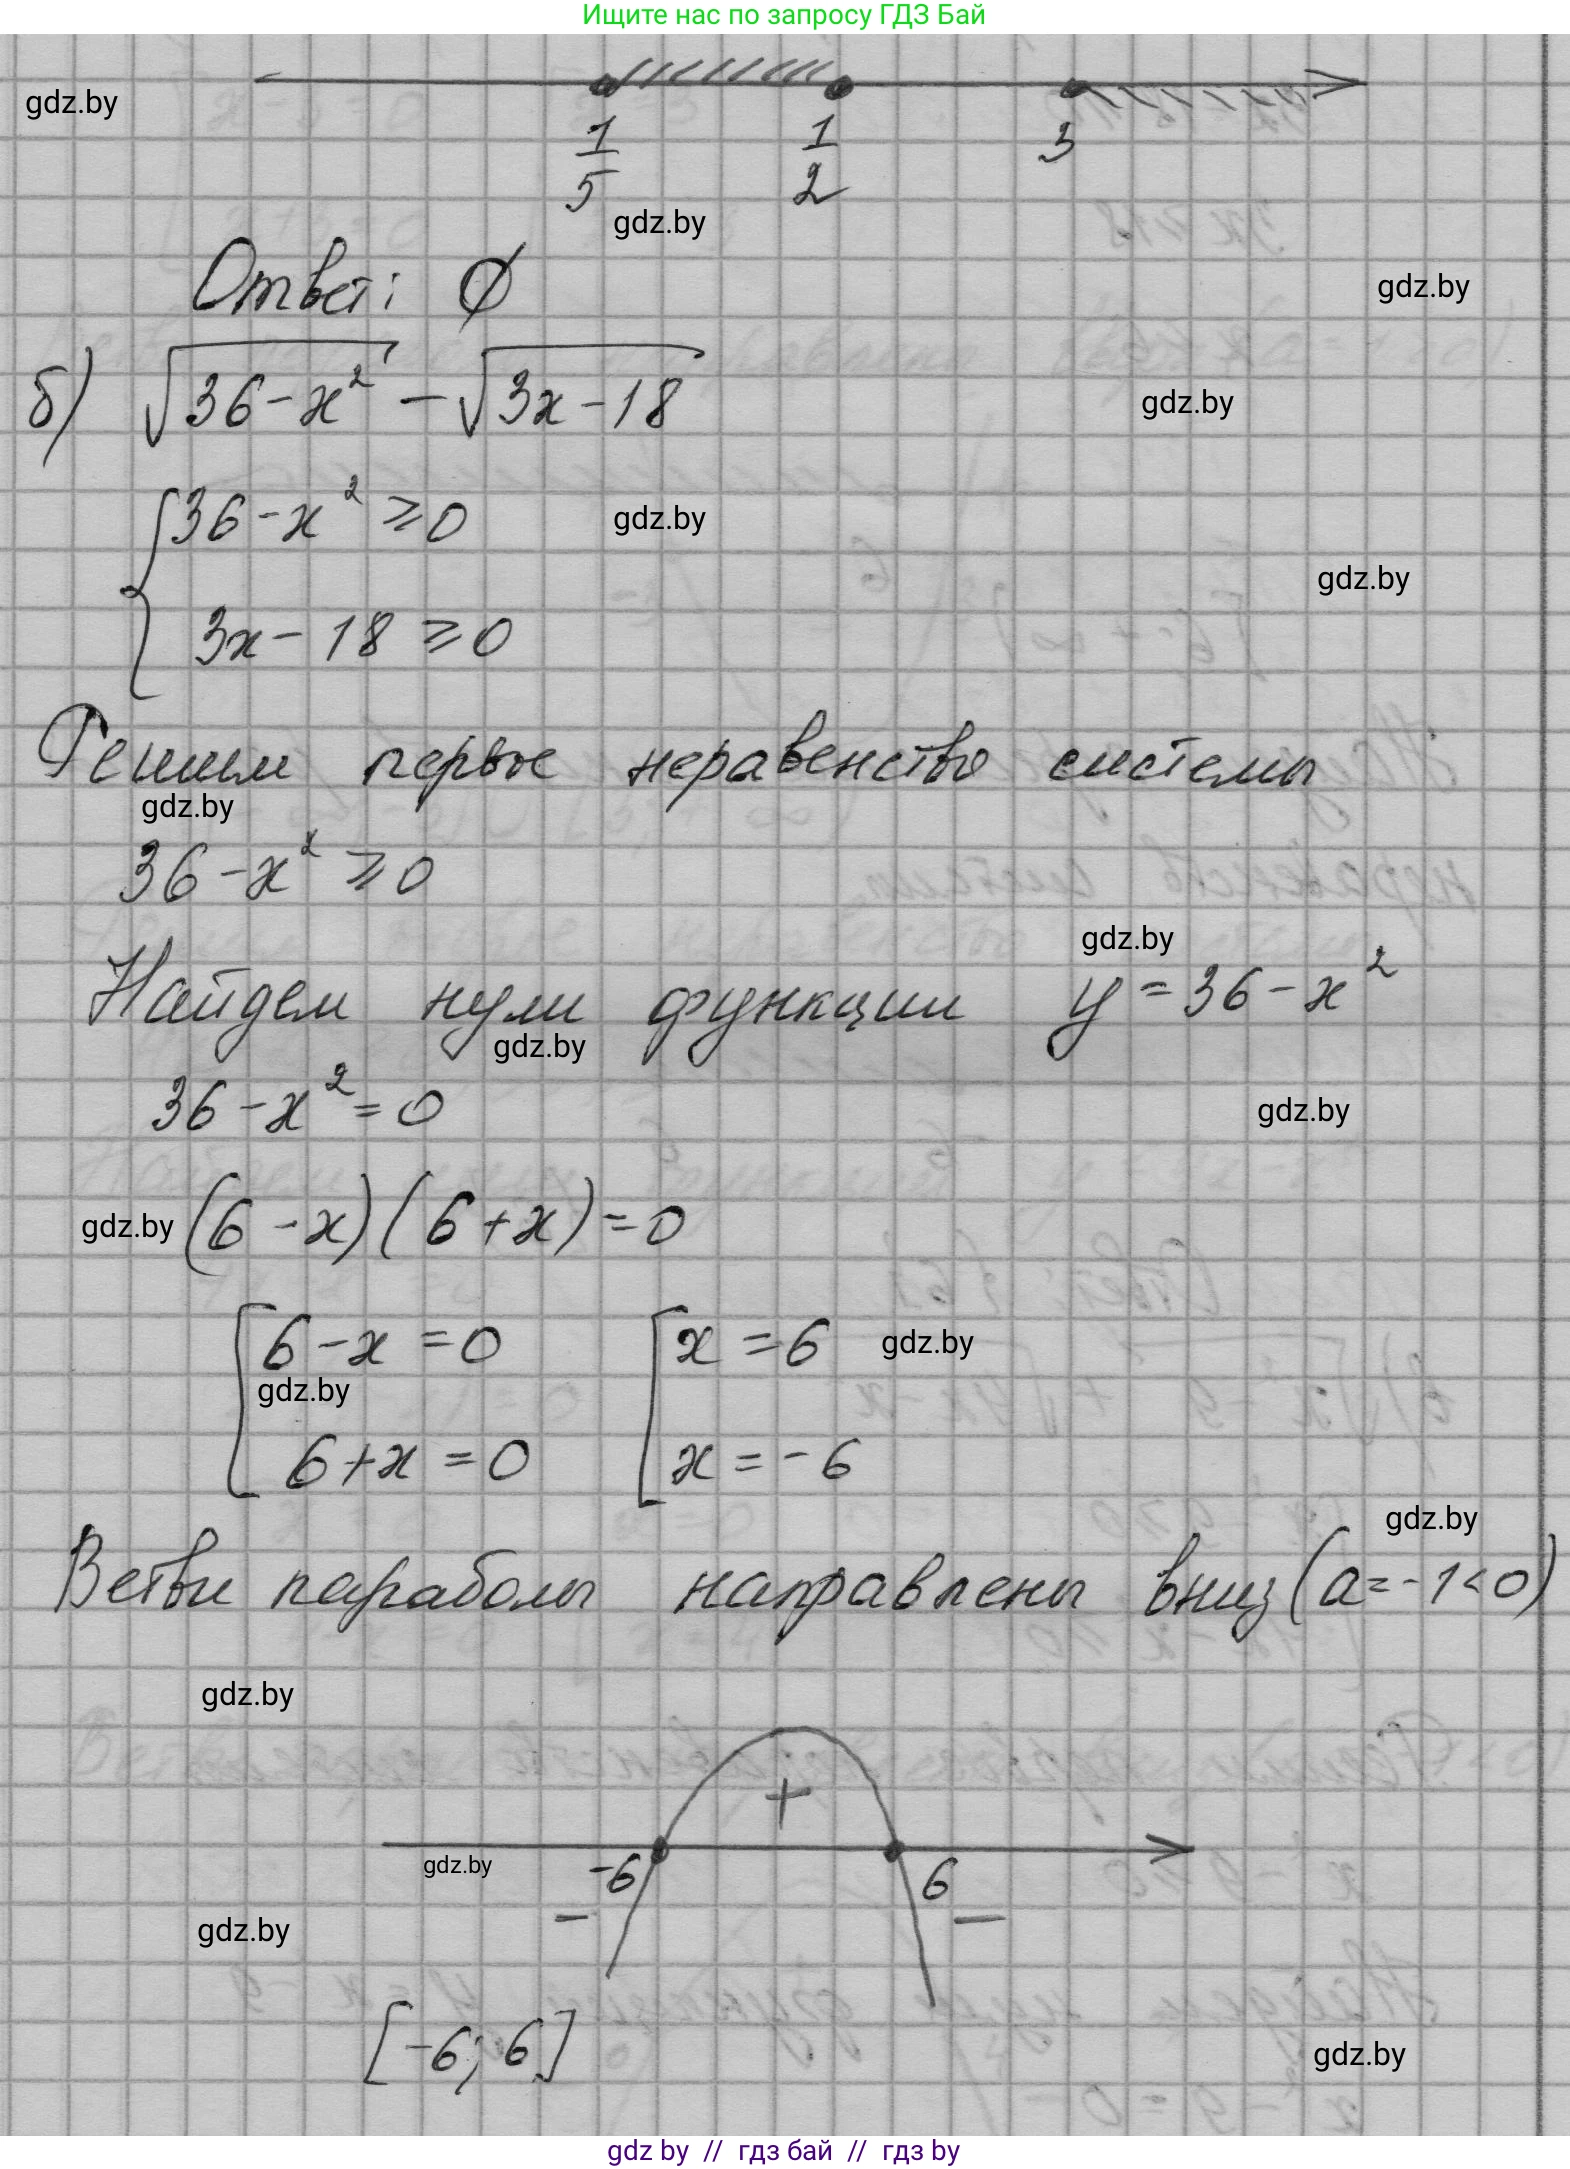 Ищите нас по запросу ГДЗ Бай
gdz.by
1/5 1/2 3
gdz.by
Ответ: ∅
gdz.by
б) √(36-x²) - √(3x-18)
gdz.by
{36-x² ≥ 0
gdz.by
gdz.by
3x-18 ≥ 0
Решим первое неравенство системы
gdz.by
36-x² ≥ 0
gdz.by
Найдем нули функции y = 36-x²
gdz.by
36-x² = 0
gdz.by
gdz.by (6-x)(6+x) = 0
[6-x = 0 [x = 6 gdz.by
gdz.by
6+x = 0 x = -6
gdz.by
Ветви параболы направлены вниз (a = -1 < 0)
gdz.by
+
gdz.by -6 6
- -
gdz.by
[-6; 6]
gdz.by
gdz by // гдз бай // гдз by